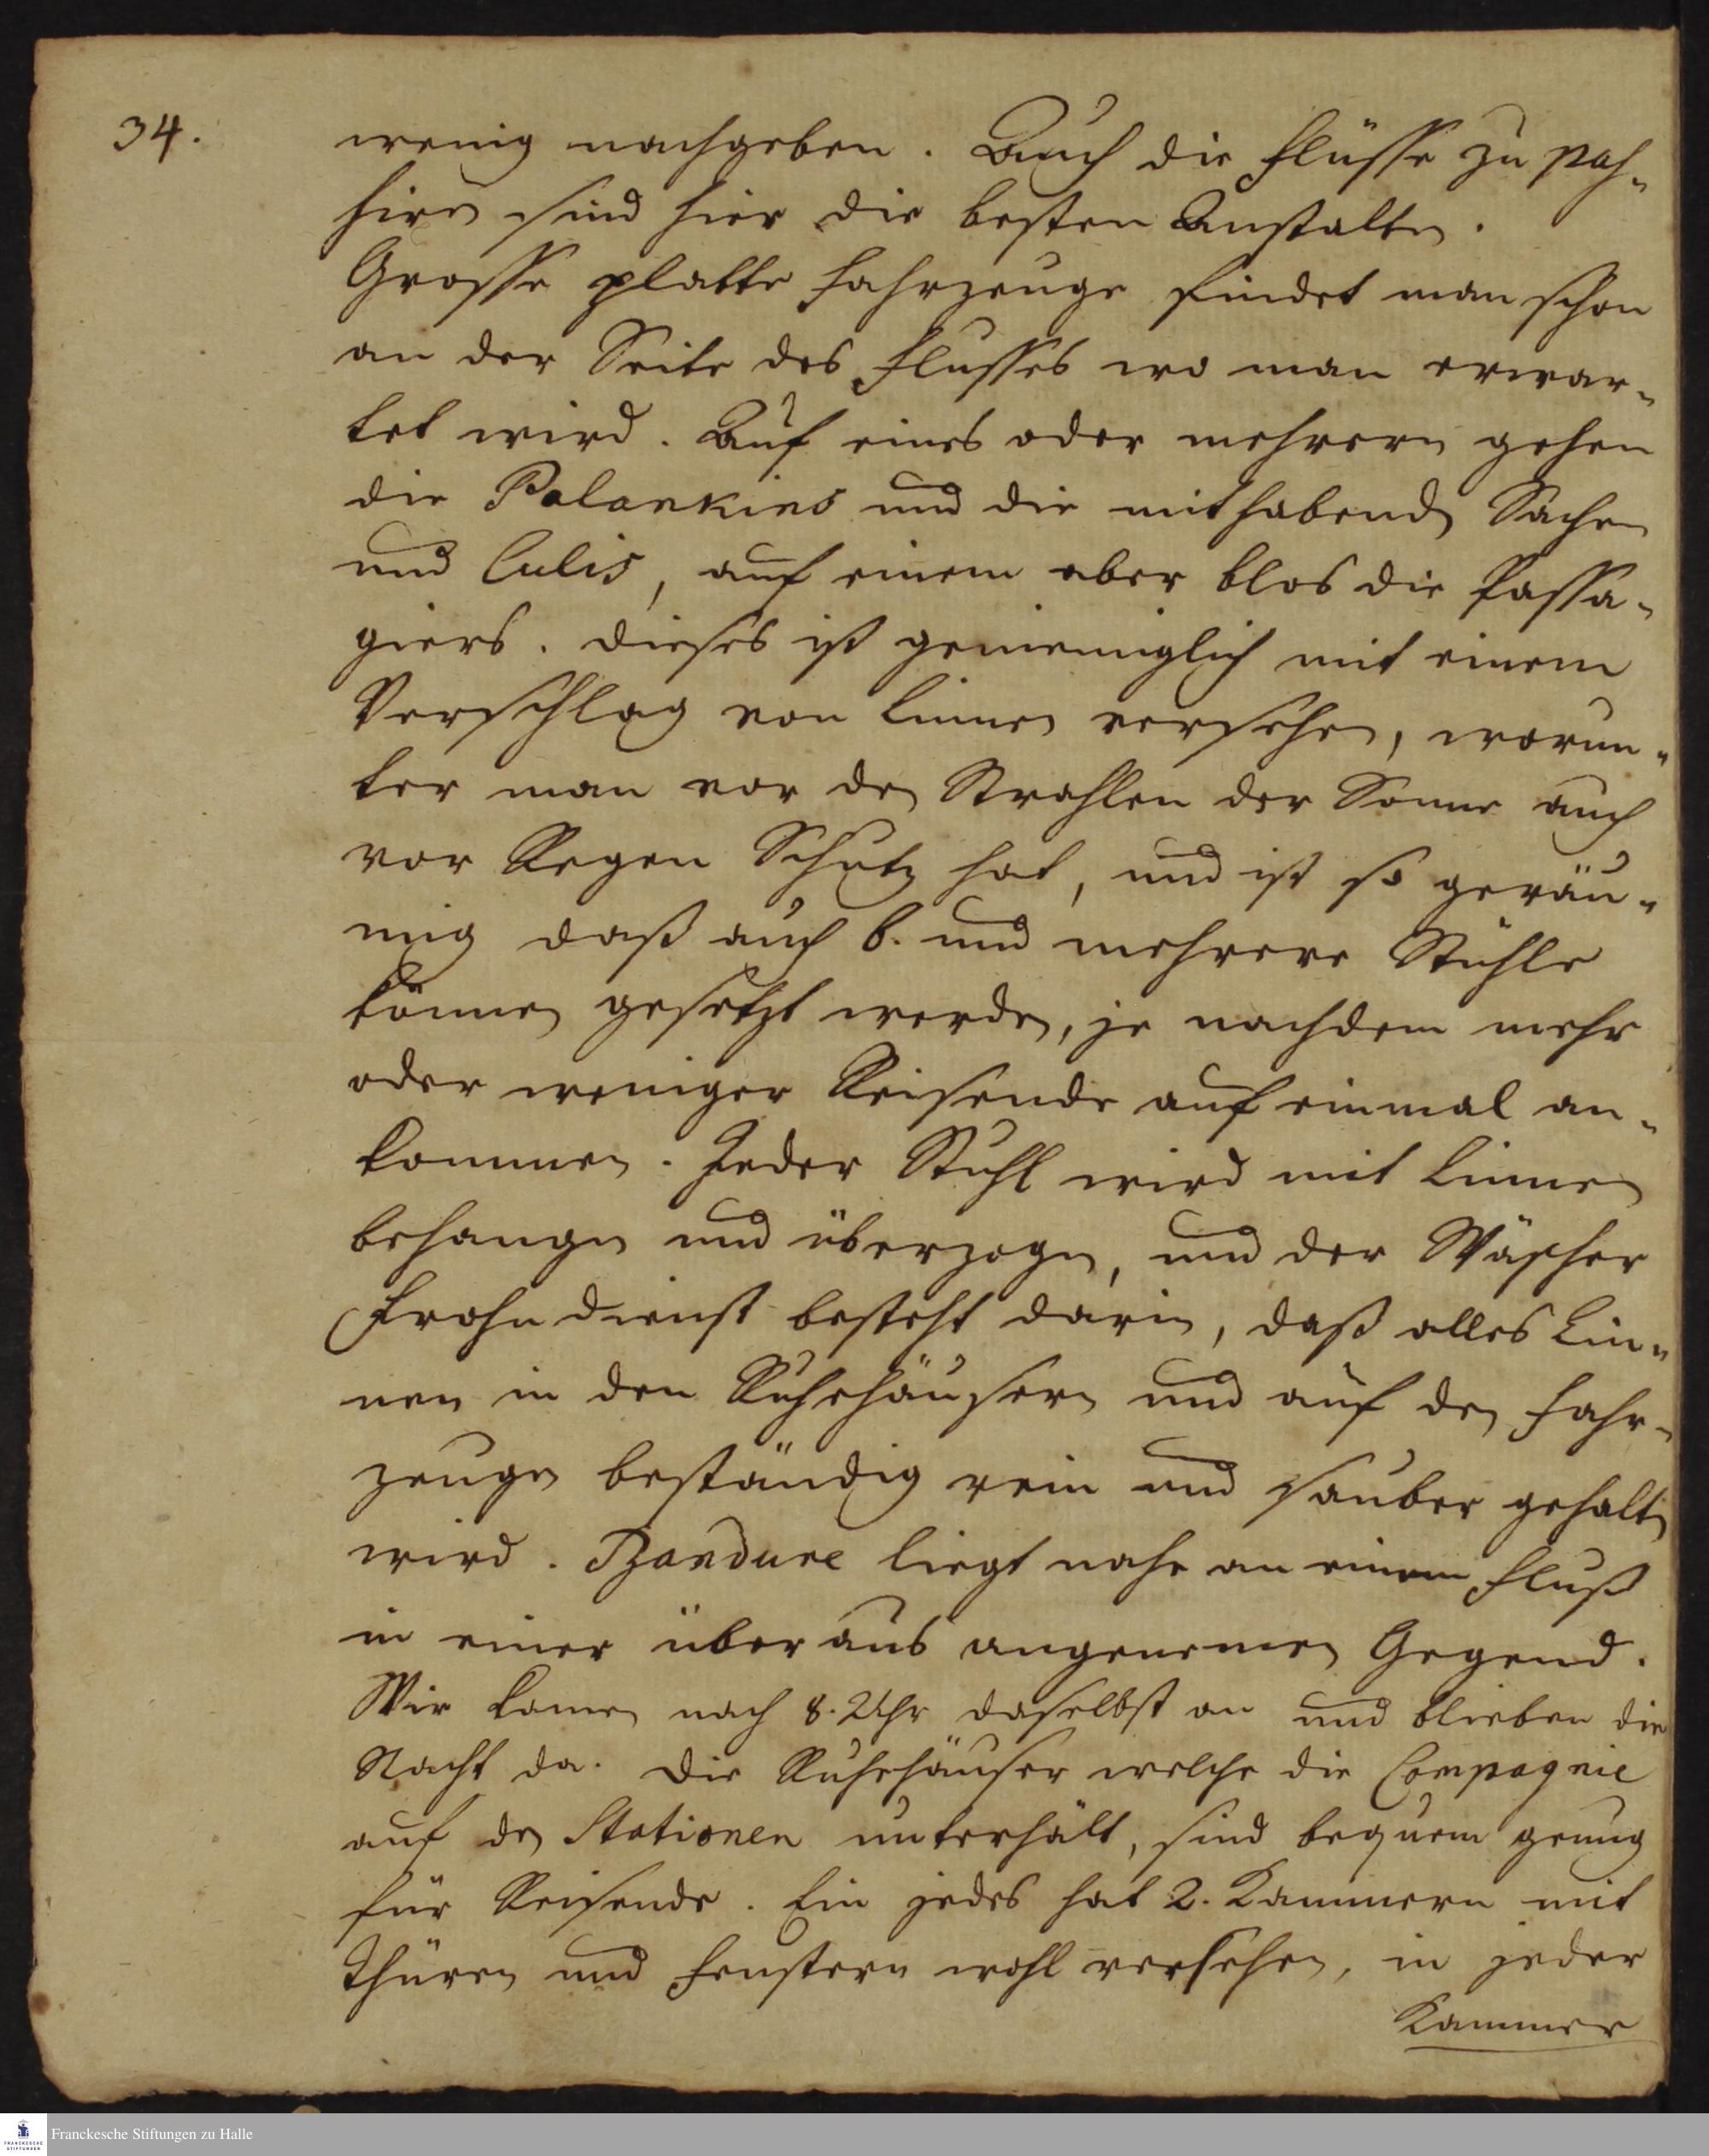 34.
wenig nachgeben. Auch die Flüsse zu pas-
siren sind hier die besten Anstalten.
Grosse platte Fahrzeuge findet man schon
an der Seite des Flusses wo man erwar-
tet wird. Auf eines oder mehrern gehen
die Palankins und die mithabenden Sachen
und Culis, auf einem aber blos die Passa-
giers. Dieses ist gemeiniglich mit einem
Verschlag von Linnen versehen, worun-
ter man vor den Strahlen der Sonne auch
vor Regen Schutz hat, und ist so geräu-
mig daß auch 6. und mehrere Stühle
können gesetzt werden, je nachdem mehr
oder weniger Reisende auf einmal an-
kommen. Jeder Stuhl wird mit Linnen
behangen und überzogen, und der Wäscher
Frohndienst besteht darin, daß alles Lin-
nen in den Ruhehäusern und auf den Fahr-
zeugen beständig rein und sauber gehalten
wird. Bandure liegt nahe an einem Fluß
in einer überaus angenemen Gegend.
Wir kamen nach 8. Uhr daselbst an und blieben die
Nacht da. Die Ruhehäuser welche die Compagnie
auf den Stationen unterhält, sind bequem genug
für Reisende. Ein jedes hat 2. Kammern mit
Thüren und Fenstern wohl versehen, in jeder
Kammer
Franckesche Stiftungen zu Halle
FRANCKESCHE
STIFTUNGEN